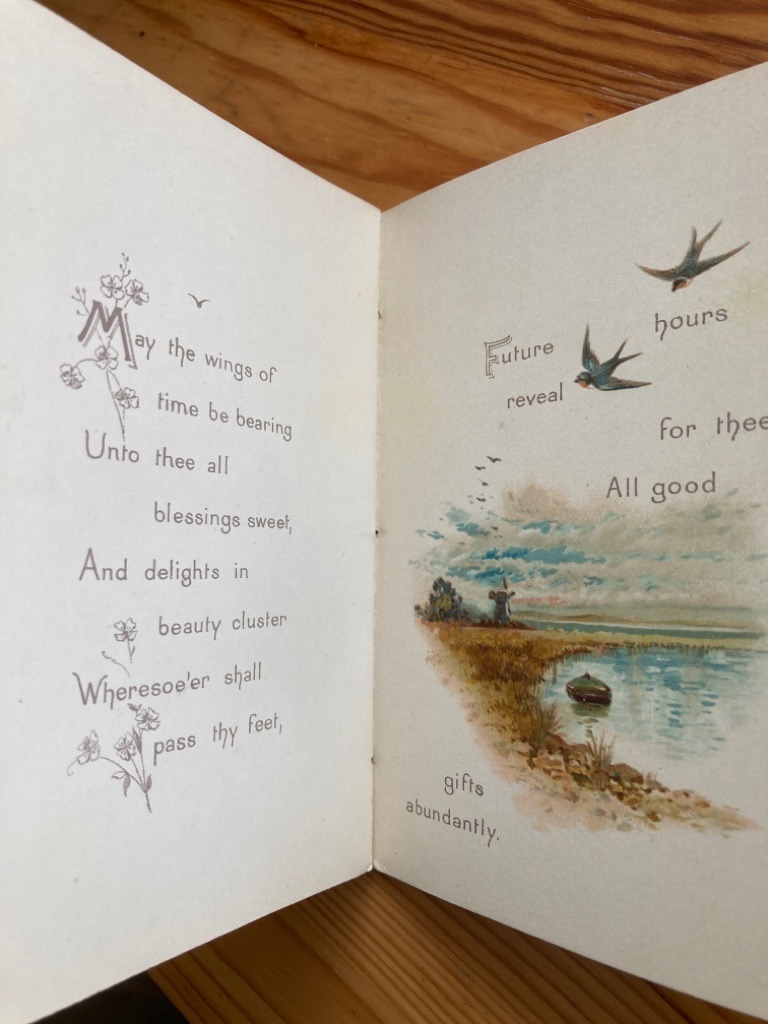 May the wings of
time be bearing
Unto thee all
blessings sweet,
And delights in
beauty cluster
Wheresoe'er shall
pass thy feet,
Future hours
reveal
for thee
All good
gifts
abundantly.